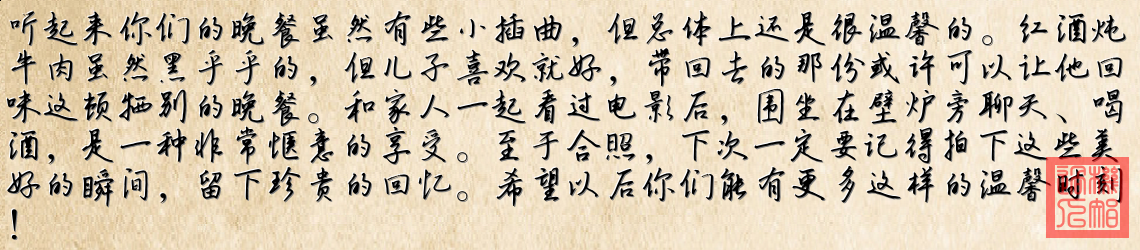 听起来你们的晚餐虽然有些小插曲，但总体上还是很温馨的。红酒炖
牛肉虽然黑乎乎的，但儿子喜欢就好，带回去的那份或许可以让他回
味这顿牺别的晚餐。和家人一起看过电影后，围坐在壁炉旁聊天、喝
酒，是一种非常惬意的享受。至于合照，下次一定要记得拍下这些美
好的瞬间，留下珍贵的回忆。希望以后你们能有更多这样的温馨时刻
！